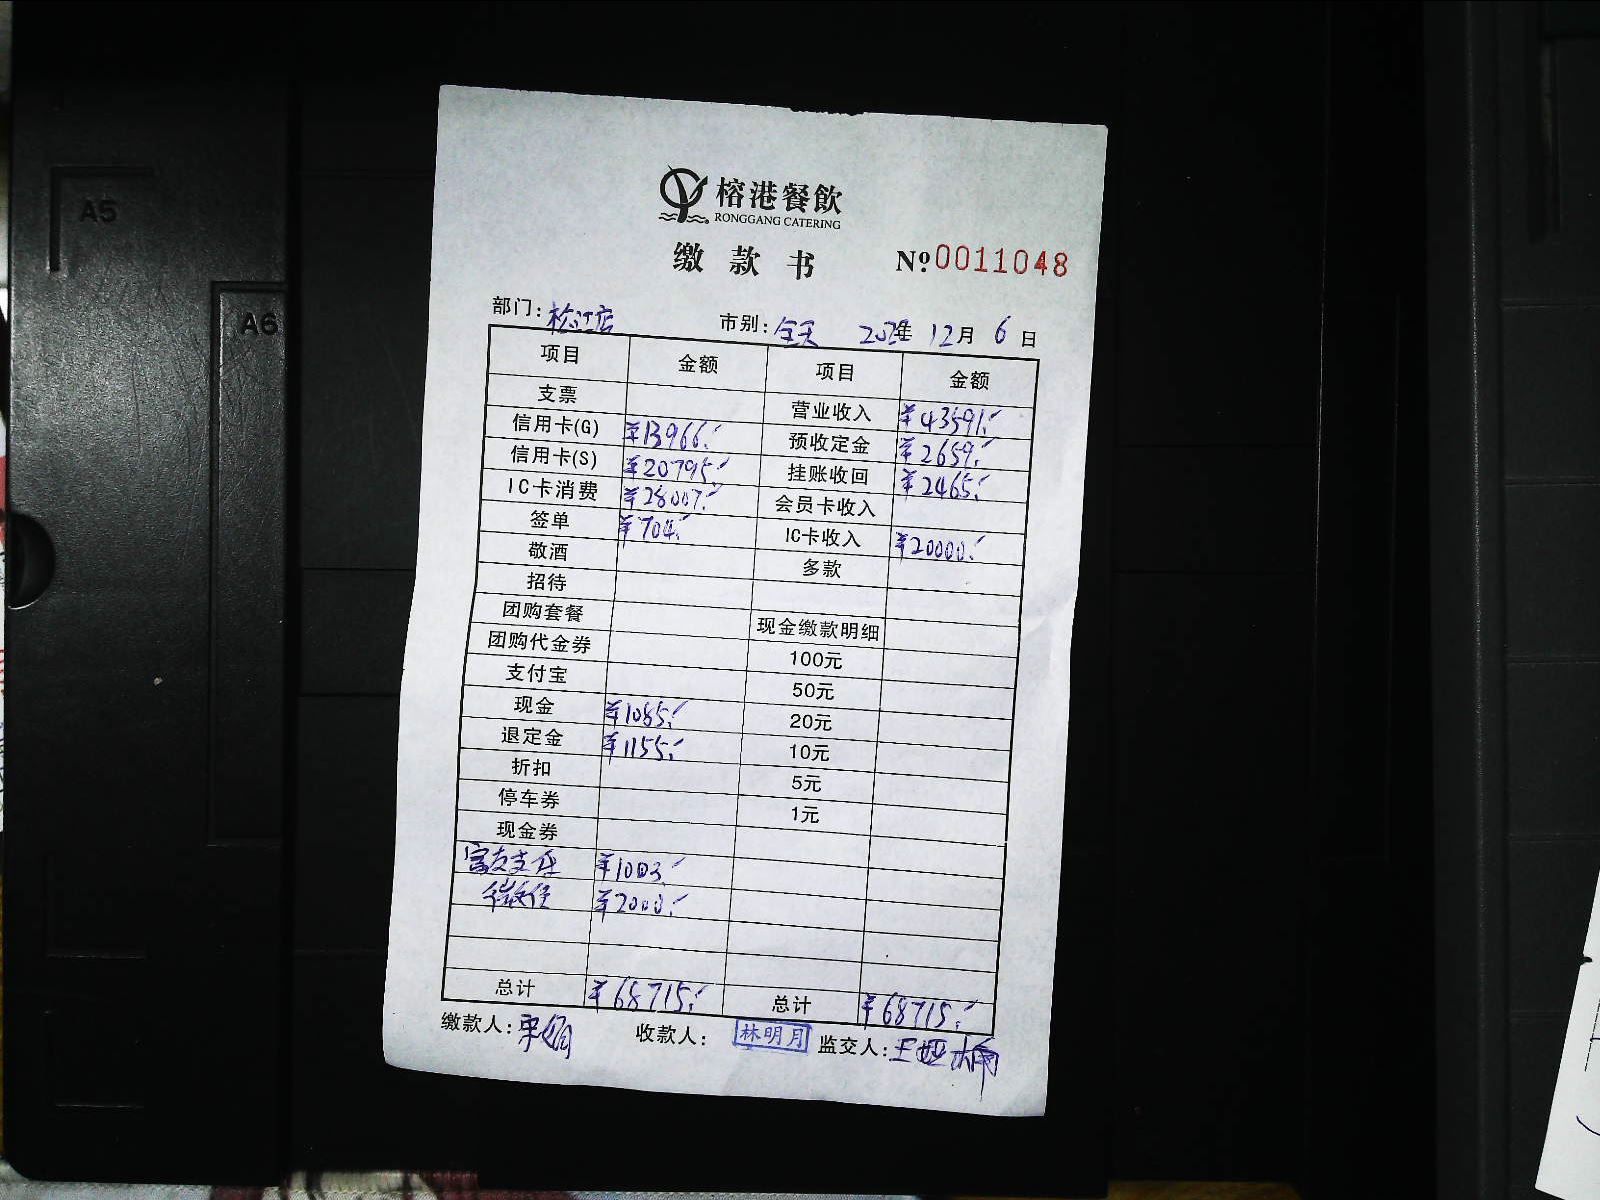 A5
A6
榕港餐飲
RONGGANG CATERING
缴款书 Nº 0011048
部门：松江店 市别：全天 年 12月 6日
项目 金额 项目 金额
支票 营业收入 ¥43591.-
信用卡(G) ¥13966.- 预收定金 ¥2659.-
信用卡(S) ¥20795.- 挂账收回 ¥2465.-
IC卡消费 ¥28007.- 会员卡收入
签单 ¥704.- IC卡收入 ¥20000.-
敬酒 多款
招待
团购套餐 现金缴款明细
团购代金券 100元
支付宝 50元
现金 ¥1085.- 20元
退定金 ¥1155.- 10元
折扣 5元
停车券 1元
现金券
富友支付 ¥1003.-
微信 ¥2000.-
总计 ¥68715.- 总计 ¥68715.-
缴款人： 收款人：林明月 监交人：王